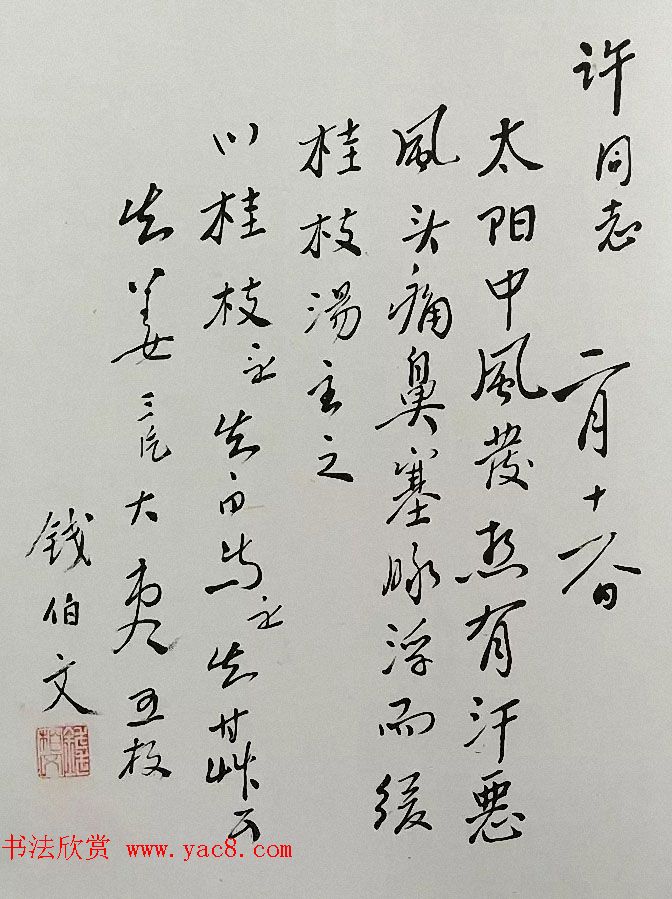 许同志 二月十日
太阳中風發热有汗惡
風头痛鼻塞脉浮而缓
桂枝湯主之
川桂枝 生白芍 生甘草
生姜三片大枣五枚
钱伯文
书法欣赏 www.yac8.com